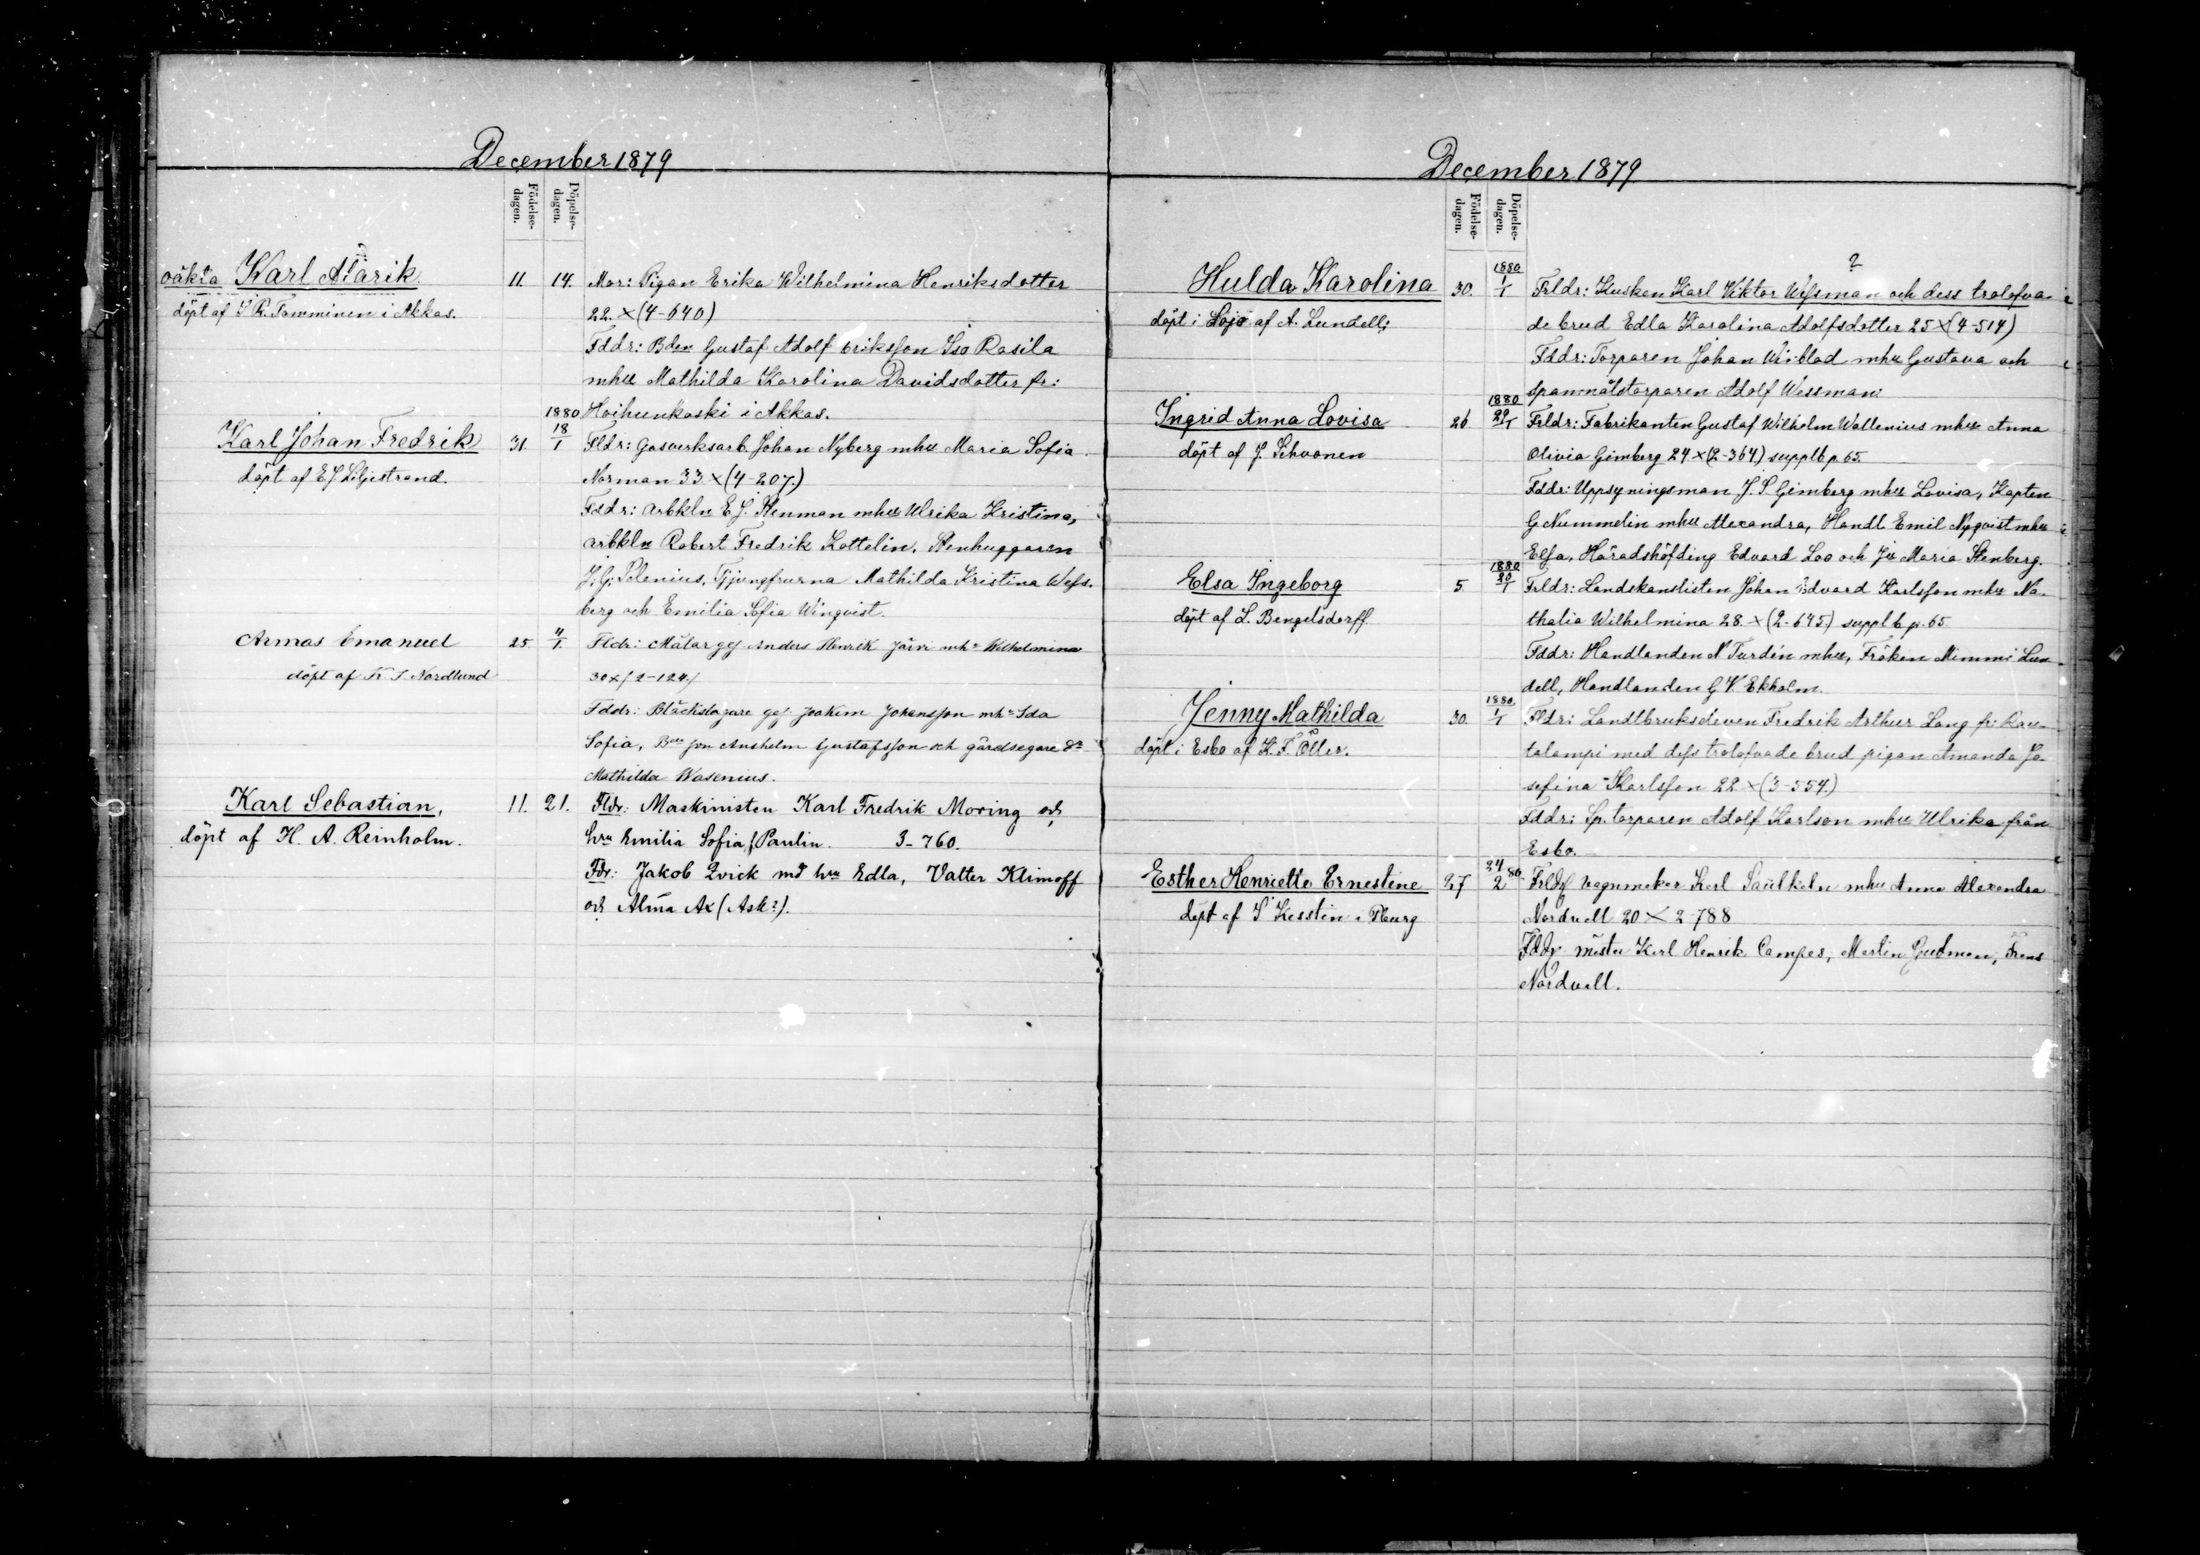 December 1879
Födelse-
dagen.
Döpelse-
dagen.
oäkta Karl Alarik
döpt af Tamminen i Akkas.
11. 14. Mor: Pigan Erika Wilhelmina Henriksdotter
22. × (4-640)
Fddr: Bden Gustaf Adolf Eriksson Iso Rasila
mhu Mathilda Karolina Davidsdotter fr:
Hoihunkoski i Akkas.
Karl Johan Fredrik
döpt af E J Liljestrand.
31. 1880 18/1 Fldr: Gasverksarb. Johan Nyberg mhu Maria Sofia
Norman 33 × (4-207.)
Fddr: arbkln E J. Stenman mhu Ulrika Kristina,
arbkln Robert Fredrik Kottelin, Stenhuggaren
J. G. Polenius, Tjjungfrurna Mathilda Kristina Wess-
berg och Emilia Sofia Winqvist.
Armas Emanuel
döpt af K. S Nordlund
25. 4/1 Fldr: Målar gej. Anders Henrik Järvi mhu Wilhelmina
30 × (2-124)
Fddr: Bläckslagare gej. Joakim Johansson mhu Ida
Sofia, Anshelm Gustafsson och gårdsegare
Mathilda Wasenius.
Karl Sebastian,
döpt af H. A. Reinholm.
11. 21. Fldr: Maskinisten Karl Fredrik Moring och
hru Emilia Sofia f. Paulin. 3-760.
Fdr: Jakob Qvick md hru Edla, Valter Klimoff
och Alma Ax (Ask?).
December 1879
Födelse-
dagen.
Döpelse-
dagen.
?
Hulda Karolina
döpt i Lojo af A. Lundell;
30. 1880 1/1 Frldr: Kusken Karl Viktor Wessman och dess trolofva-
de brud Edla Karolina Adolfsdotter 25 × (4-514)
Fddr: Torparen Johan Winblad mhu Gustava och
spanmålstorparen Adolf Wessman:
Ingrid Anna Lovisa
döpt af J. Sihvonen
26. 1880 29/1 Frldr: Fabrikanten Gustaf Wilhelm Wallenius mhu Anna
Olivia Gimberg 24 × (2-364) supplb p. 65.
Fddr: Uppsyningsman J. S. Gimberg mhu Lovisa, Kapten
G. Nummelin mhu Alexandra, Handl. Emil Nyqvist mhu
Elsa, Häradshöfding Edvard Loo och Maria Stenberg.
Elsa Ingeborg
döpt af L. Bengelsdorff
5. 1880 20/1 Frldr: Landskanslisten Johan Edvard Karlsson mhu Na-
thalia Wilhelmina 28. × (2-645) supplb p. 65
Fddr: Handlanden N Turdén mhu, Fröken Mimmi Lun-
dell, Handlanden G. V. Ekholm.
Jenny Mathilda
döpt i Esbo af K. F. Öller.
30. 1880 1/1 Fldr: Landtbrukseleven Fredrik Arthur Lang fr: Rau-
talampi med dess trolofvade brud pigan Amanda Jo-
sefina Karlsson 22 × (3-554.)
Fddr: Sp. torparen Adolf Karlson mhu Ulrika från
Esbo.
Esther Henriette Ernestine
döpt af Kesstin
27 24/2 80 Frldr vagnmakar mhu Anna Alexandra
Nordvall 20 × 2-788
Fddr Karl Henrik Campes, Martin Gudman, Frans
Nordvall.